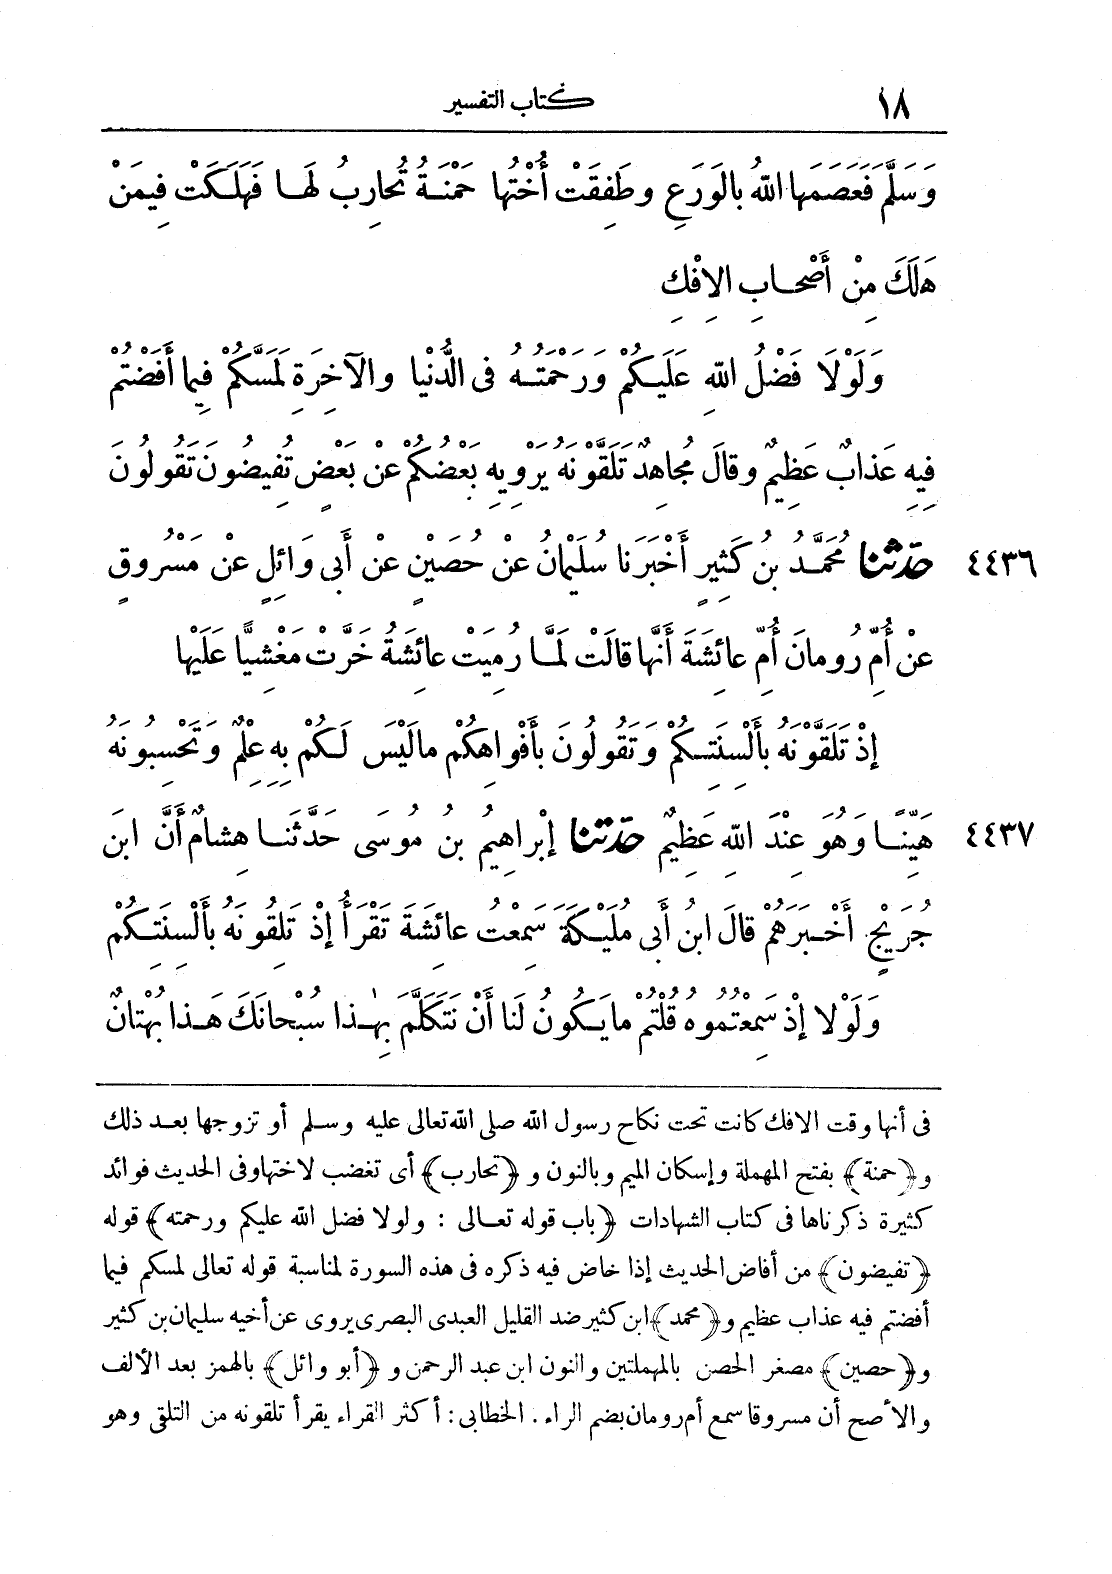 ١٨ كتاب التفسير
وَسَلَّمَ فَعَصَمَهَا اللهُ بِالوَرَعِ وطَفِقَتْ أُخْتُها حَمْنَةُ تُحارِبُ لَها فَهَلَكَتْ فِيمَنْ
هَلَكَ مِنْ أَصْحابِ الإفْكِ
وَلَوْلَا فَضْلُ اللهِ عَلَيكُمْ ورَحْمَتُهُ فى الدُّنْيا والآخِرَةِ لَمَسَّكُمْ فِيما أَفَضْتُمْ
فِيهِ عَذابٌ عَظِيمٌ وقالَ مُجاهِدٌ تَلَقَّوْنَهُ يَرْوِيهِ بَعْضُكُمْ عَنْ بَعْضٍ تُفِيضُونَ تَقُولُونَ
٤٤٣٦ حَدَّثَنا مُحَمَّدُ بنُ كَثِيرٍ أَخْبَرَنا سُلَيْمانُ عَنْ حُصَيْنٍ عَنْ أَبى وَائِلٍ عَنْ مَسْرُوقٍ
عَنْ أُمِّ رُومانَ أُمِّ عائِشَةَ أَنَّها قالَتْ لَمَّا رُمِيَتْ عائِشَةُ خَرَّتْ مَغْشِيًّا عَلَيْها
إذْ تَلَقَّوْنَهُ بِأَلْسِنَتِكُمْ وَتَقُولُونَ بِأَفْواهِكُمْ مالَيْسَ لَكُمْ بِهِ عِلْمٌ وتَحْسِبُونَهُ
٤٤٣٧ هَيِّنًا وَهُوَ عِنْدَ اللهِ عَظِيمٌ حَدَّثَنا إبْراهِيمُ بنُ مُوسَى حَدَّثَنا هِشامٌ أَنَّ ابنَ
جُرَيْجٍ أَخْبَرَهُمْ قالَ ابنُ أَبى مُلَيْكَةَ سَمِعْتُ عائِشَةَ تَقْرَأُ إذْ تَلِقُونَهُ بِأَلْسِنَتِكُمْ
وَلَوْلا إذْ سَمِعْتُمُوهُ قُلْتُمْ ما يَكُونُ لَنا أَنْ نَتَكَلَّمَ بِهٰذا سُبْحانَكَ هَذا بُهْتانٌ
فى أنها وقت الافك كانت تحت نكاح رسول الله صلى الله تعالى عليه وسلم أو تزوجها بعد ذلك
و﴿حمنة﴾ بفتح المهملة وإسكان الميم وبالنون و﴿تحارب﴾ أى تغضب لاختها وفى الحديث فوائد
كثيرة ذكرناها فى كتاب الشهادات ﴿باب قوله تعالى : ولولا فضل الله عليكم ورحمته﴾ قوله
﴿تفيضون﴾ من أفاض الحديث إذا خاض فيه ذكره فى هذه السورة لمناسبة قوله تعالى لمسكم فيما
أفضتم فيه عذاب عظيم و﴿محمد﴾ ابن كثير ضد القليل العبدى البصرى يروى عن أخيه سليمان بن كثير
و﴿حصين﴾ مصغر الحصن بالمهملتين والنون ابن عبد الرحمن و﴿أبو وائل﴾ بالهمز بعد الألف
والأصح أن مسروقا سمع أم رومان بضم الراء . الخطابى : أكثر القراء يقرأ تلقونه من التلقى وهو